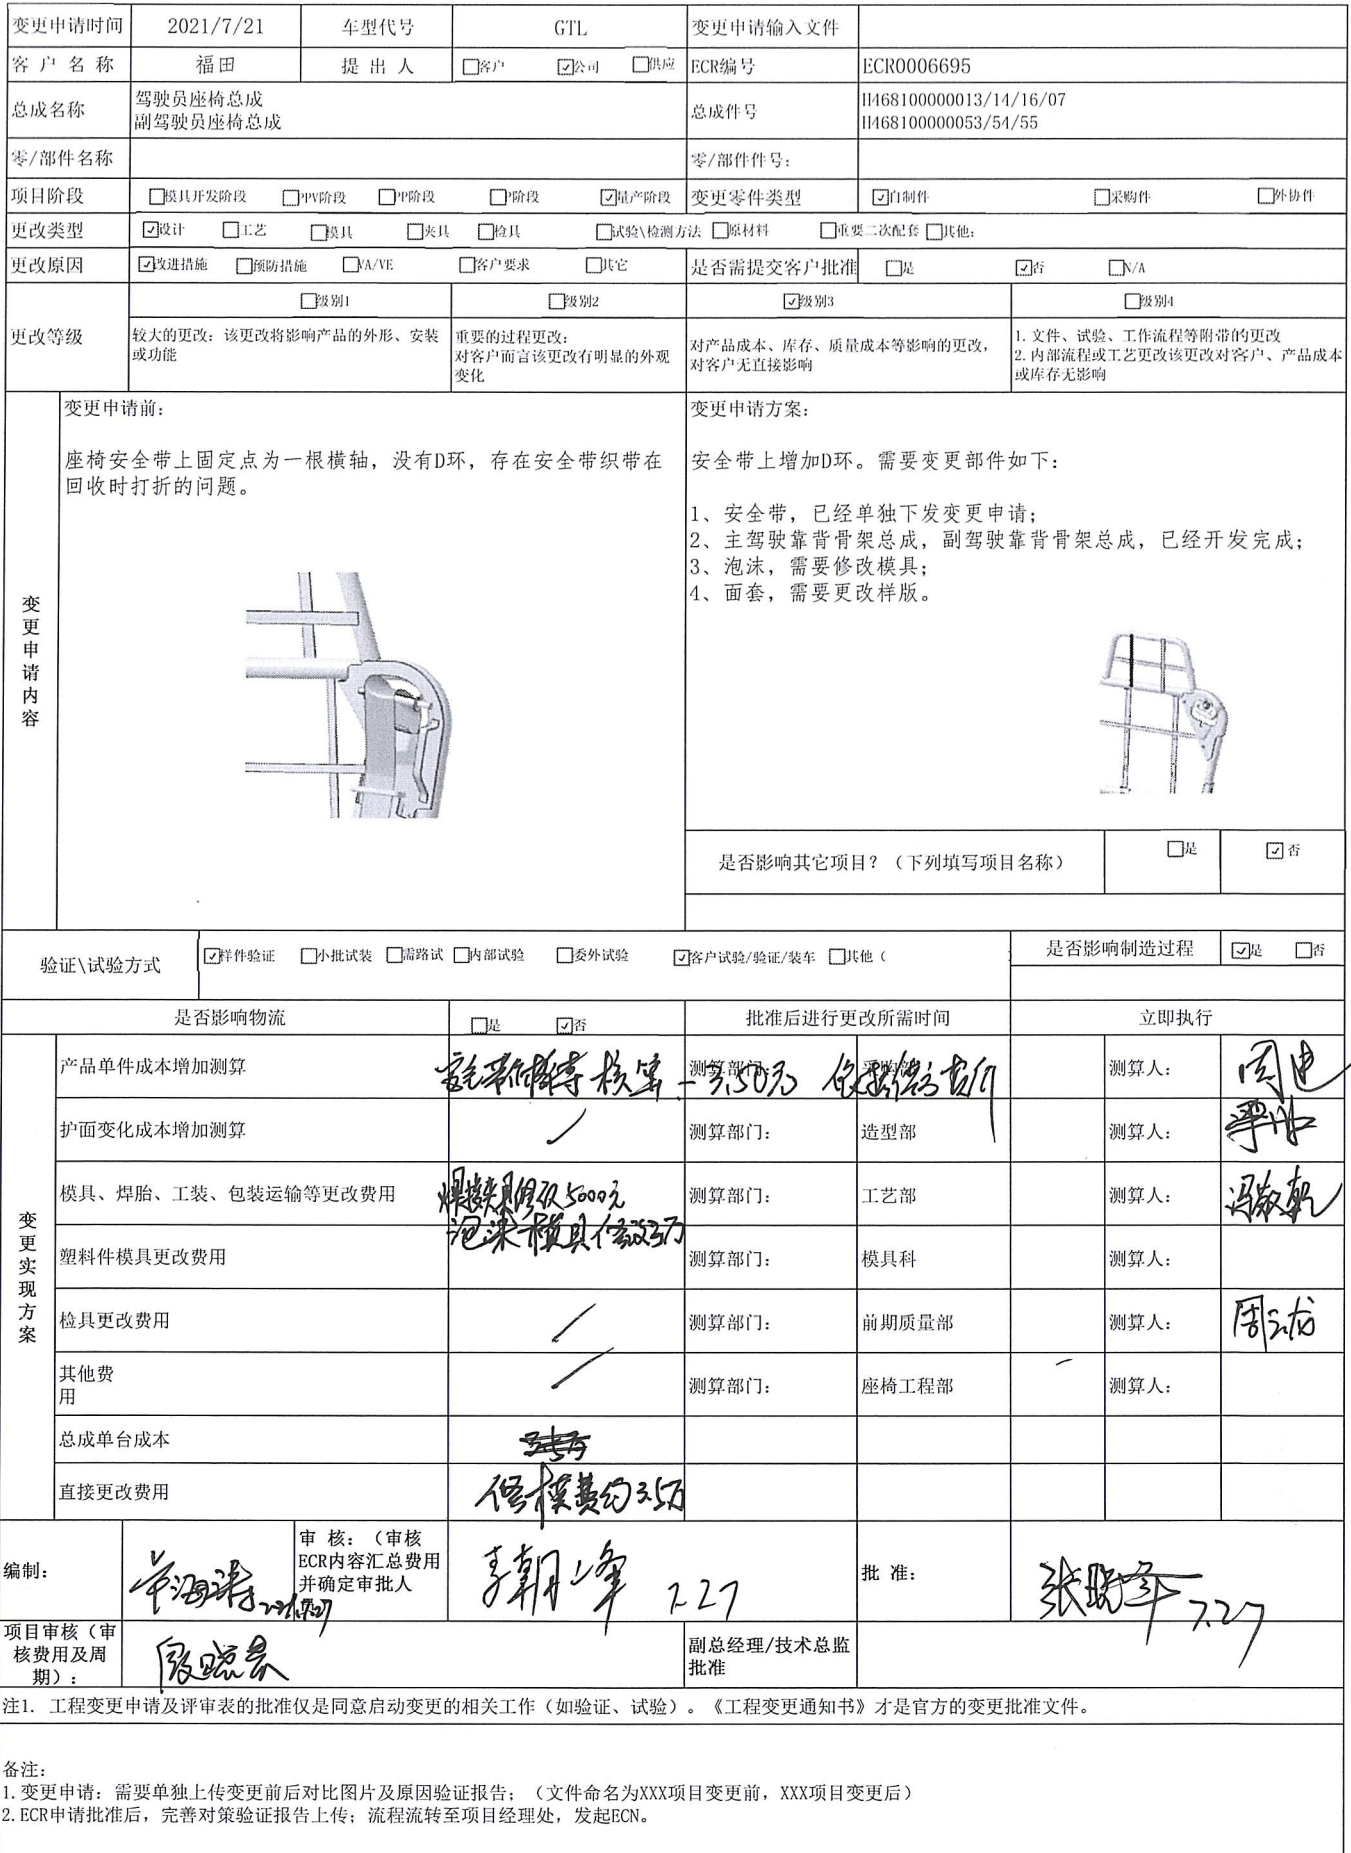 变更申请时间 2021/7/21 车型代号 GTL 变更申请输入文件
客户名称 福田 提出人 □客户 ☑公司 □供应 ECR编号 ECR0006695
总成名称 驾驶员座椅总成
副驾驶员座椅总成
总成件号 H468100000013/14/16/07
H468100000053/54/55
零/部件名称 零/部件件号:
项目阶段 □模具开发阶段 □PPV阶段 □PP阶段 □P阶段 ☑量产阶段 变更零件类型 ☑自制件 □采购件 □外协件
更改类型 ☑设计 □工艺 □模具 □夹具 □检具 □试验\检测方法 □原材料 □重要二次配套 □其他:
更改原因 ☑改进措施 □预防措施 □VA/VE □客户要求 □其它 是否需提交客户批准 □是 ☑否 □N/A
更改等级
□级别1 □级别2 ☑级别3 □级别4
较大的更改: 该更改将影响产品的外形、安装
或功能
重要的过程更改:
对客户而言该更改有明显的外观
变化
对产品成本、库存、质量成本等影响的更改,
对客户无直接影响
1. 文件、试验、工作流程等附带的更改
2. 内部流程或工艺更改该更改对客户、产品成本
或库存无影响
变更申请内容
变更申请前:
座椅安全带上固定点为一根横轴, 没有D环, 存在安全带织带在
回收时打折的问题。
变更申请方案:
安全带上增加D环。需要变更部件如下:
1、安全带, 已经单独下发变更申请;
2、主驾驶靠背骨架总成, 副驾驶靠背骨架总成, 已经开发完成;
3、泡沫, 需要修改模具;
4、面套, 需要更改样版。
是否影响其它项目? (下列填写项目名称) □是 ☑否
验证\试验方式 ☑样件验证 □小批试装 □需路试 □内部试验 □委外试验 ☑客户试验/验证/装车 □其他(
是否影响制造过程 ☑是 □否
是否影响物流 □是 ☑否 批准后进行更改所需时间 立即执行
变更实现方案
产品单件成本增加测算 测算部门: 采购部 测算人:
护面变化成本增加测算 / 测算部门: 造型部 测算人:
模具、焊胎、工装、包装运输等更改费用 焊接夹具修改5000元 测算部门: 工艺部 测算人: 冯敬乾
泡沫模具修改3万
塑料件模具更改费用 测算部门: 模具科 测算人:
检具更改费用 / 测算部门: 前期质量部 测算人: 周云龙
其他费
用
/ 测算部门: 座椅工程部 测算人:
总成单台成本
直接更改费用 修模费约3.5万
编制:
审 核: (审核
ECR内容汇总费用
并确定审批人
李朝峰 7.27
批 准:
张晓华 7.27
项目审核(审
核费用及周
期):
副总经理/技术总监
批准
注1. 工程变更申请及评审表的批准仅是同意启动变更的相关工作(如验证、试验)。《工程变更通知书》才是官方的变更批准文件。
备注:
1.变更申请: 需要单独上传变更前后对比图片及原因验证报告; (文件命名为XXX项目变更前, XXX项目变更后)
2.ECR申请批准后, 完善对策验证报告上传; 流程流转至项目经理处, 发起ECN。